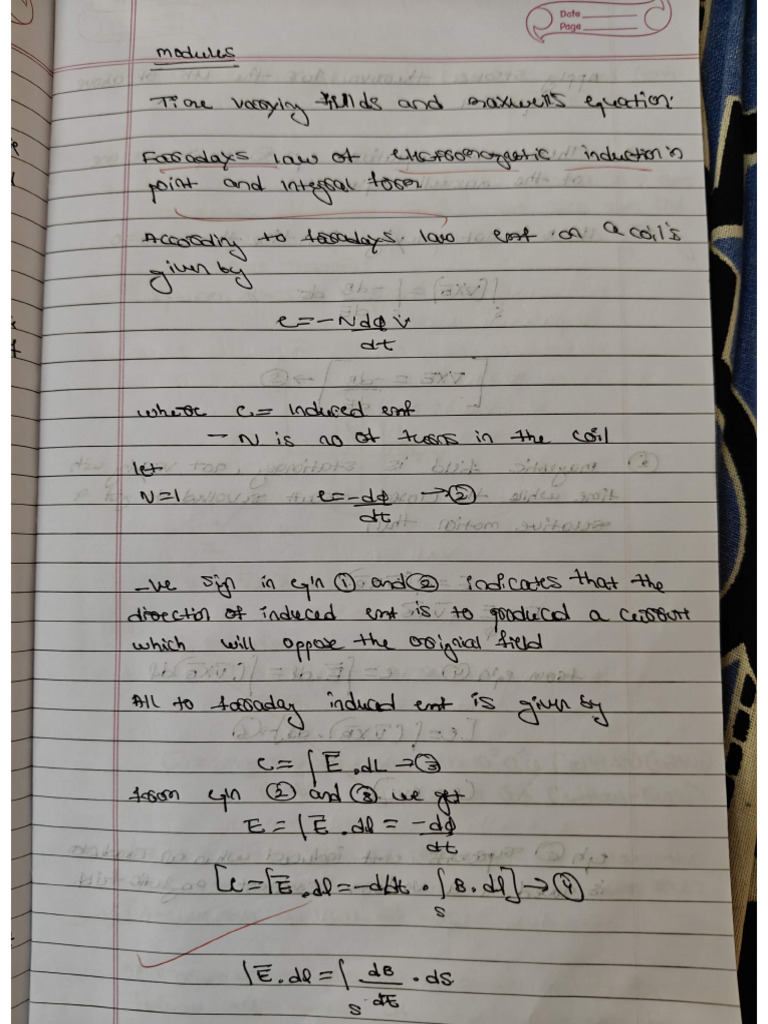 Date
Page
modules
Time varying fields and maxwell's equation.
Faradays law of electromagnetic induction in
point and integral form
According to faradays law emf on a coil's
given by
e = -Ndφ v
dt
where e = induced emf
- N is no of turns in the coil
let
N=1 e = -dφ → ②
dt
-ve sign in eq/n ① and ② indicates that the
direction of induced emf is to produced a current
which will oppose the original field
All to faraday induced emf is given by
e = ∫ E̅ . dL → ③
from eq/n ② and ③ we get
E = ∫ E̅ . dl = -dφ
dt
[e = ∫E̅ . dl = -d/dt . ∫ B . dl] → ④
s
∫E̅ . dl = ∫ dB . ds
s dt